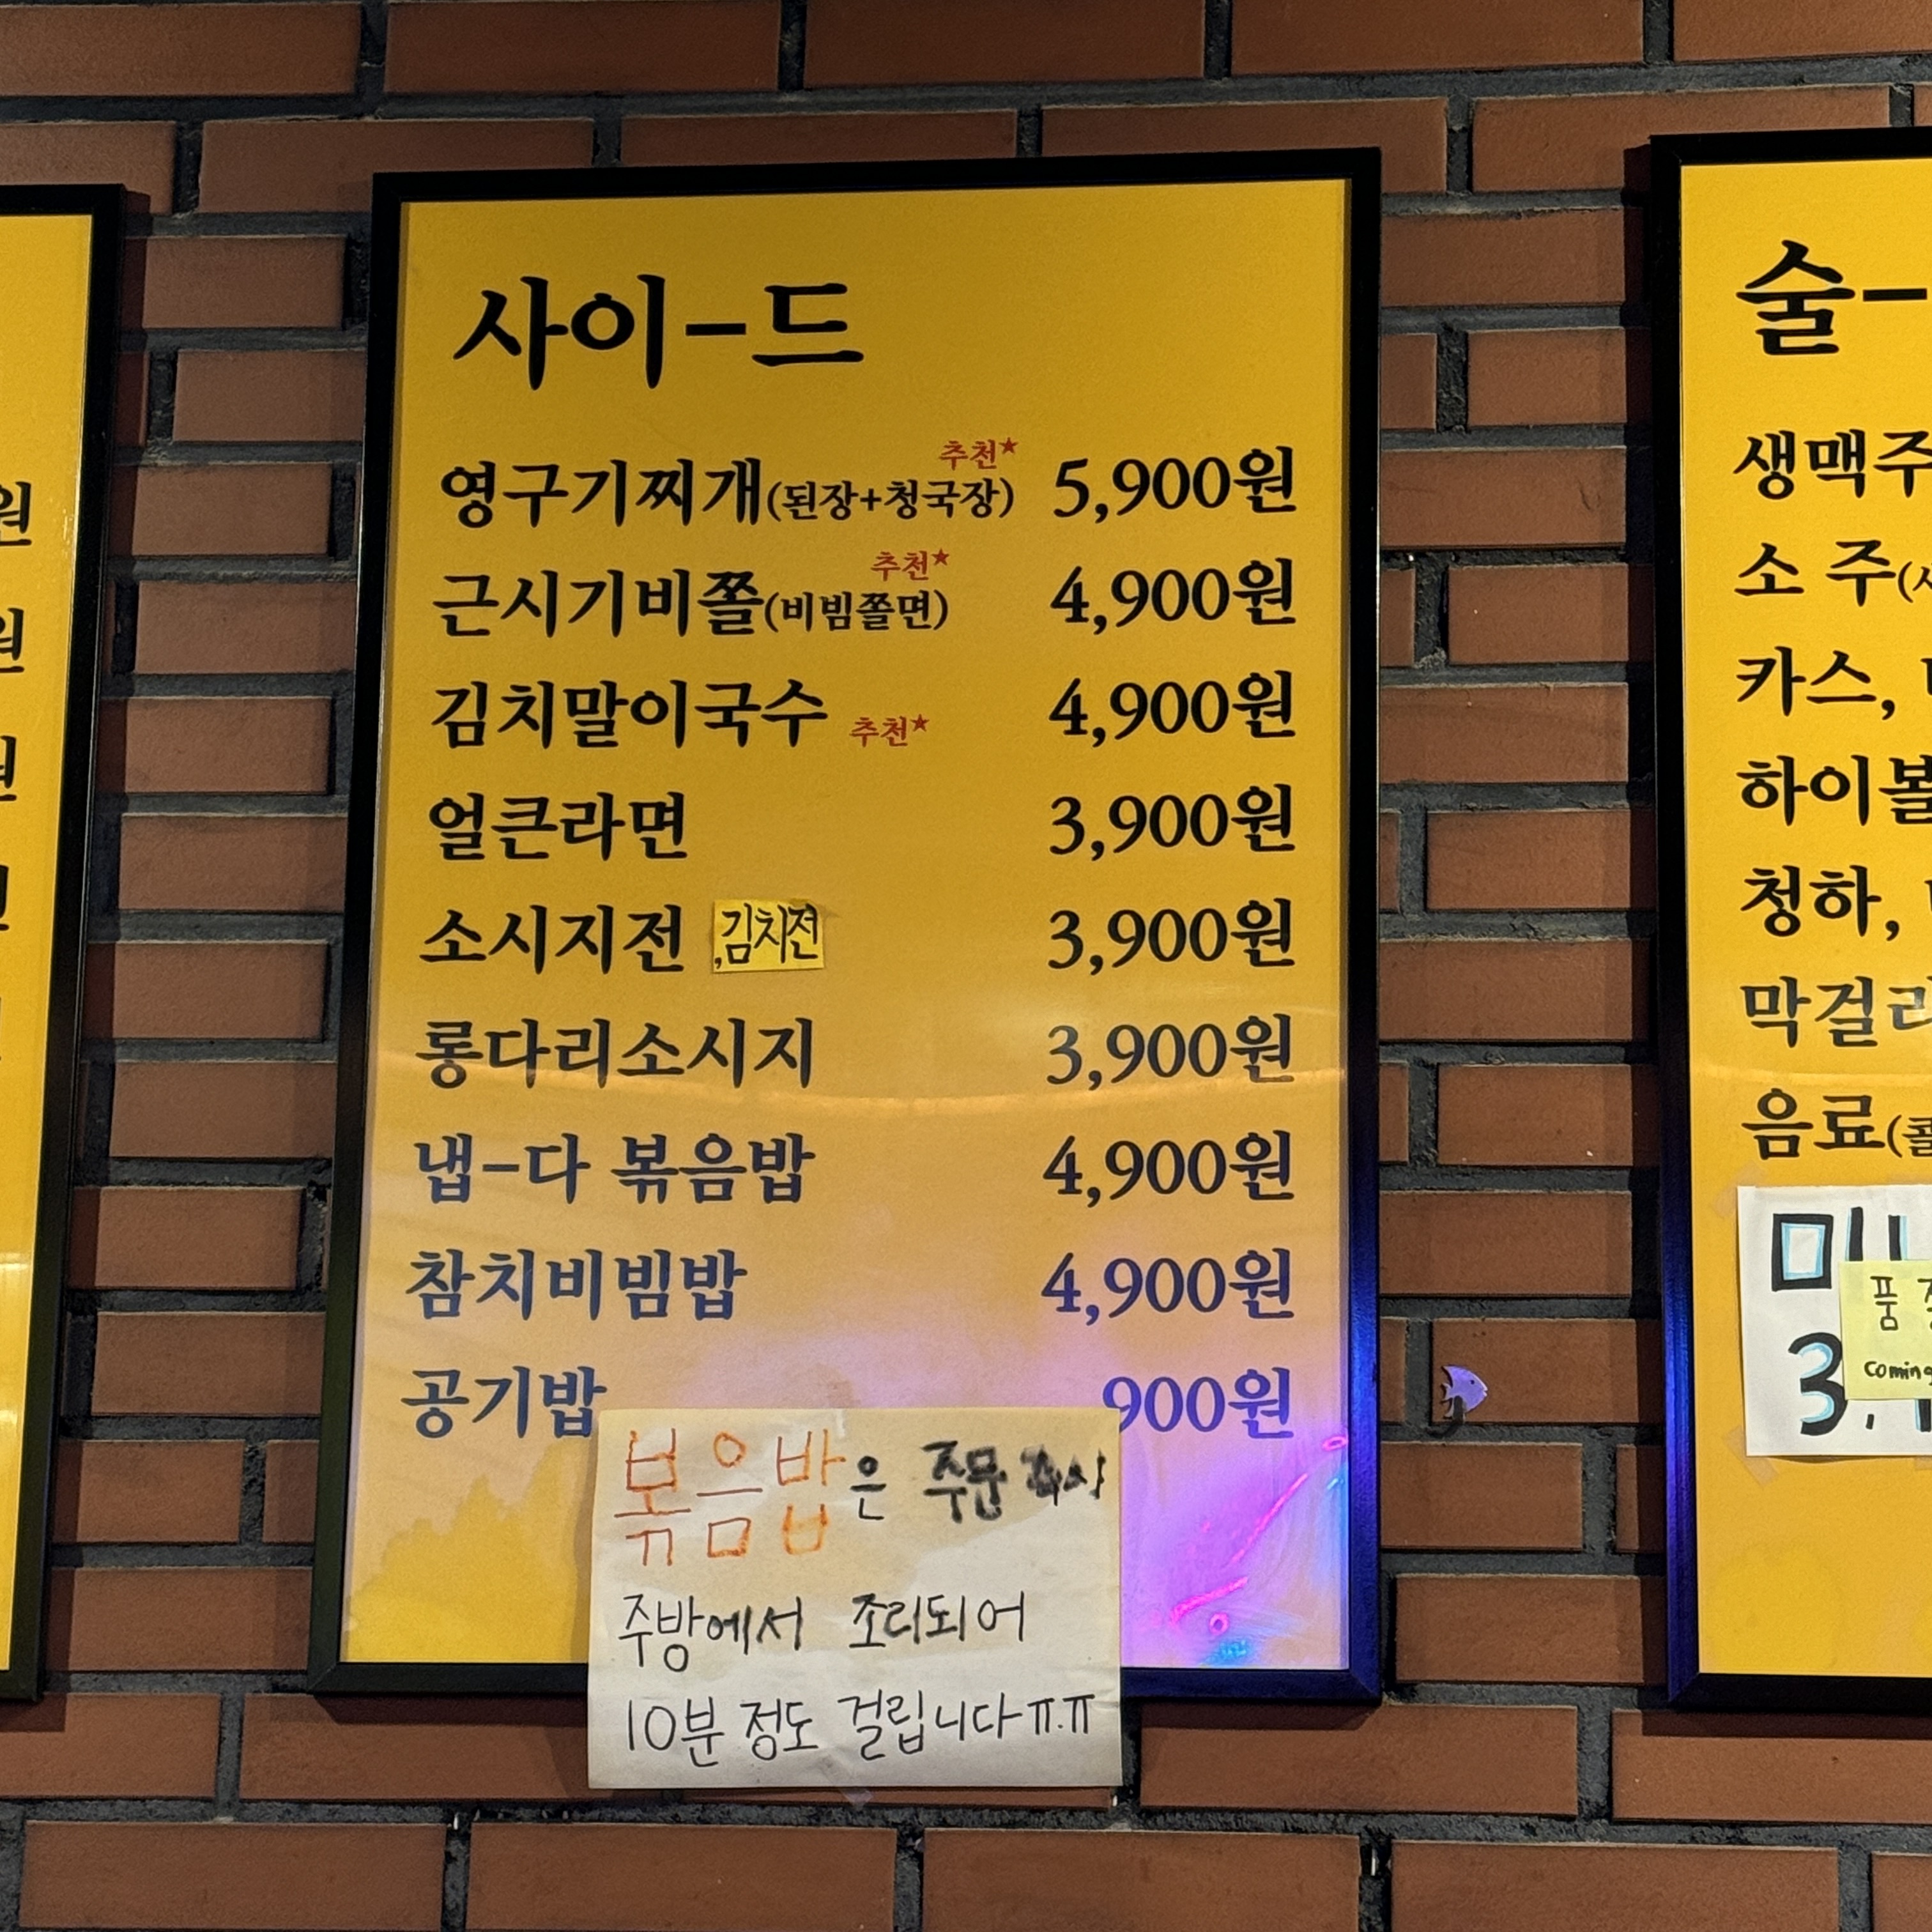 원
원
원
사이-드
추천★
영구기찌개(된장+청국장) 5,900원
추천★
근시기비쫄(비빔쫄면) 4,900원
김치말이국수 추천★ 4,900원
얼큰라면 3,900원
소시지전 ,김치전 3,900원
롱다리소시지 3,900원
냅-다 볶음밥 4,900원
참치비빔밥 4,900원
공기밥 900원
볶음밥은 주문
주방에서 조리되어
10분 정도 걸립니다ㅠ.ㅠ
술-
생맥주
소 주(
카스,
하이볼
청하,
막걸리
음료(콜
미니
품
coming
3,